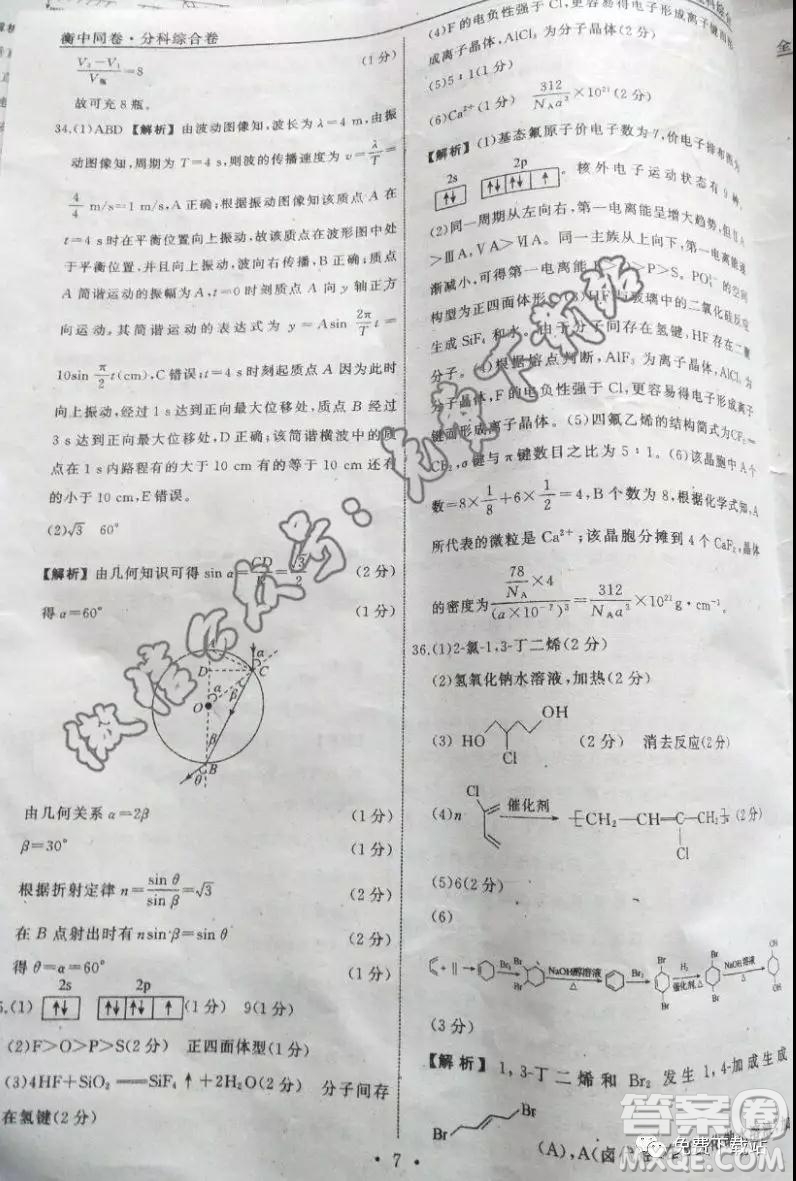 衡中同卷·分科综合卷
V₂-V₁
V瓶
=8
(1分)
故可充8瓶。
34.(1)ABD 【解析】由波动图像知,波长为λ=4 m,由振
动图像知,周期为T=4 s,则波的传播速度为v=λ/T=
4/4 m/s=1 m/s,A正确;根据振动图像知该质点A在
t=4 s时在平衡位置向上振动,故该质点在波形图中处
于平衡位置,并且向上振动,波向右传播,B正确;质点
A简谐运动的振幅为A,t=0时刻质点A向y轴正方
向运动,其简谐运动的表达式为y=Asin 2π/T t=
10sin π/2 t(cm),C错误;t=4 s时刻起质点A因为此时
向上振动,经过1 s达到正向最大位移处,质点B经过
3 s达到正向最大位移处,D正确;该简谐横波中的质
点在1 s内路程有的大于10 cm有的等于10 cm还有
的小于10 cm,E错误。
(2)√3 60°
【解析】由几何知识可得sin α=CD/R=√3/2 (2分)
得α=60° (1分)
A
D
α
C
O
α
β
B
θ
B
由几何关系α=2β (1分)
β=30° (1分)
根据折射定律n=sin θ/sin β=√3 (2分)
在B点射出时有nsin β=sin θ (2分)
得θ=α=60° (1分)
5.(1) 2s ↑↓ 2p ↑↓ ↑↓ ↑ (1分) 9(1分)
(2)F>O>P>S(2分) 正四面体型(1分)
(3)4HF+SiO₂══SiF₄↑+2H₂O(2分) 分子间存
在氢键(2分)
(4)F的电负性强于Cl,更容易得电子形成离子键而形
成离子晶体,AlCl₃为分子晶体(2分)
(5)5:1(1分)
(6)Ca²⁺(1分) 312/(N_A a³)×10²¹(2分)
【解析】(1)基态氟原子价电子数为7,价电子排布图为
2s ↑↓ 2p ↑↓ ↑↓ ↑。核外电子运动状态有9种。
(2)同一周期从左向右,第一电离能呈增大趋势,但ⅡA
>ⅢA,ⅤA>ⅥA。同一主族从上向下,第一电离能逐
渐减小,可得第一电离能 >P>S。PO₄³⁻的空间
构型为正四面体形。(3)HF与玻璃中的二氧化硅反应
生成SiF₄和水。由于分子间存在氢键,HF存在二聚
分子。(4)根据熔点判断,AlF₃为离子晶体,AlCl₃为
分子晶体,F的电负性强于Cl,更容易得电子形成离子
键而形成离子晶体。(5)四氟乙烯的结构简式为CF₂=
CF₂,σ键与π键数目之比为5:1。(6)该晶胞中A个
数=8×1/8+6×1/2=4,B个数为8,根据化学式知,A
所代表的微粒是Ca²⁺;该晶胞分摊到4个CaF₂,晶体
的密度为(78/N_A×4)/(a×10⁻⁷)³=312/(N_A a³)×10²¹ g·cm⁻³。
36.(1)2-氯-1,3-丁二烯(2分)
(2)氢氧化钠水溶液,加热(2分)
(3) HO Cl OH (2分) 消去反应(2分)
(4)n Cl 催化剂 [CH₂—CH=C—CH₂]ₙ Cl (2分)
(5)6(2分)
(6)
+ ‖ Br₂ Br Br NaOH醇溶液 △ Br₂ Br Br H₂ 催化剂,△ Br Br NaOH溶液 △ OH OH
(3分)
【解析】1,3-丁二烯和Br₂发生1,4-加成生成
Br Br
(A),A(卤
·7·
答案圈
免费下载站
MXQE.COM